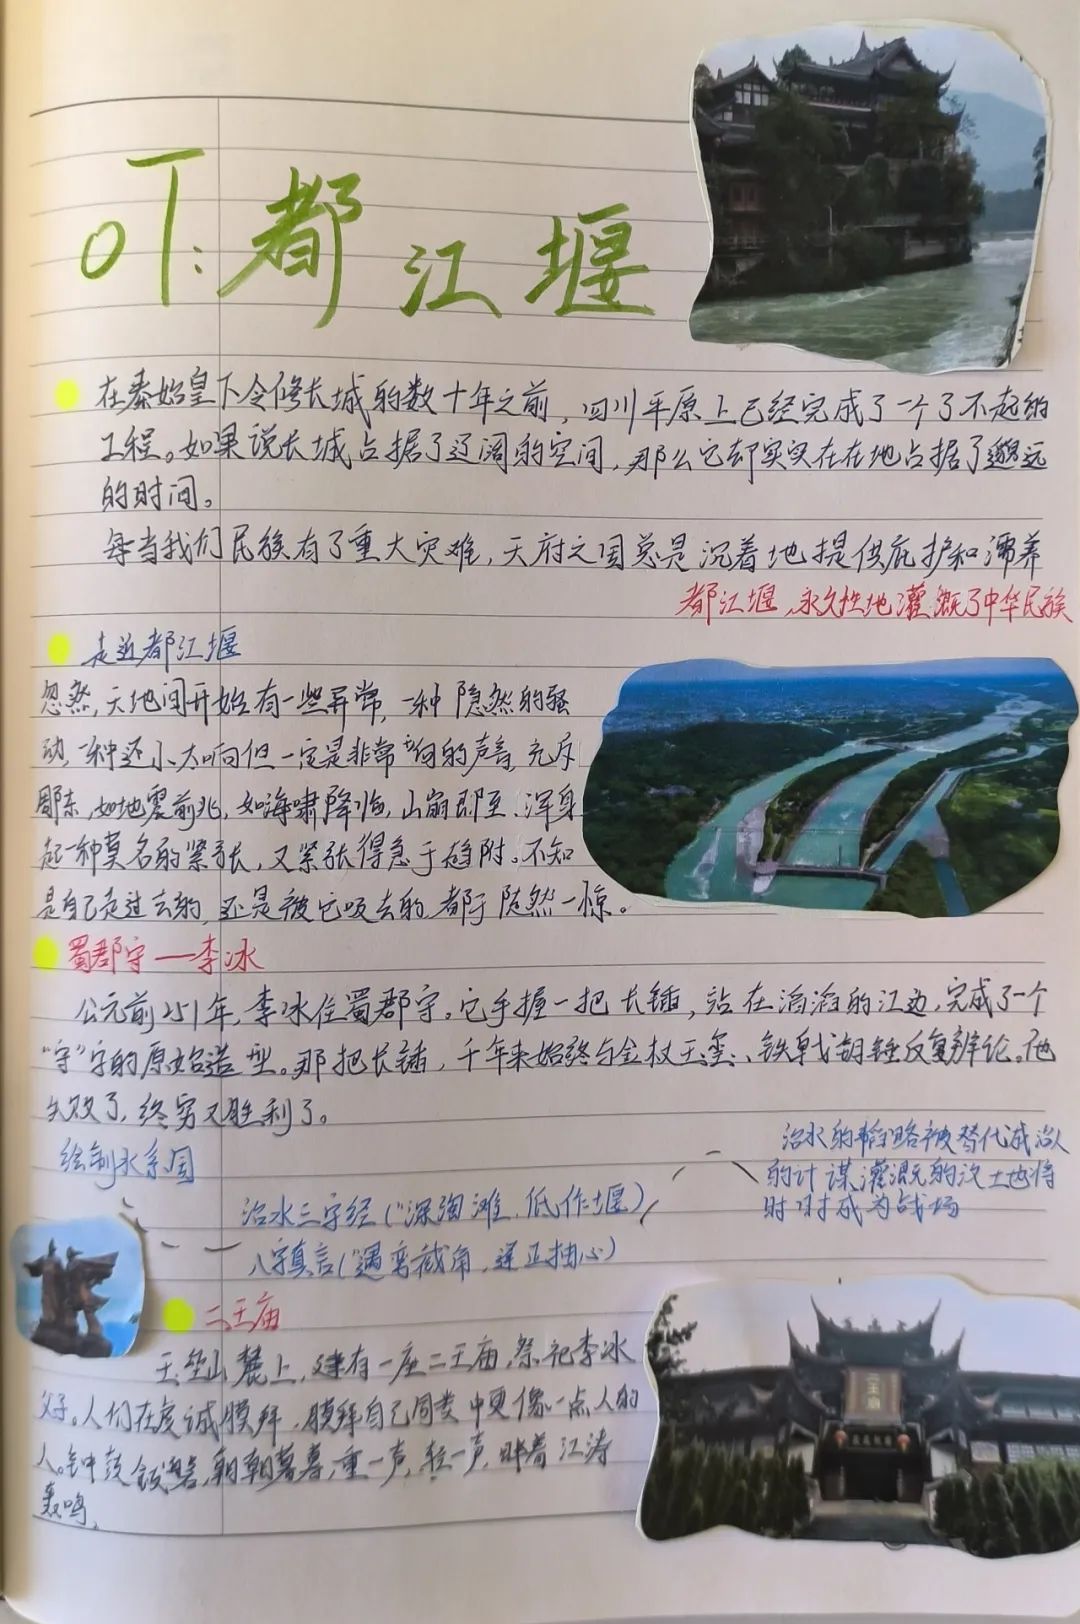 01:都江堰
在秦始皇下令修长城的数十年之前,四川平原上已经完成了一个了不起的
工程。如果说长城占据了辽阔的空间,那么它却实实在在地占据了邈远
的时间。
每当我们民族有了重大灾难,天府之国总是沉着地提供庇护和濡养
都江堰,永久性地灌溉了中华民族
走近都江堰
忽然,天地间开始有一些异常,一种隐然的骚
动,一种还不太响但一定是非常响的声音,充斥
周东,如地震前兆,如海啸降临,山崩即至,浑身
起一种莫名的紧张,又紧张得急于趋附。不知
是自己走过去的,还是被它吸去的,都于陡然一惊。
蜀郡守—李冰
公元前251年,李冰任蜀郡守。它手握一把长锸,站在滔滔的江边,完成了一个
“守”字的原始造型。那把长锸,千年来始终与金杖玉玺、铁戟钢锤反复辨论。他
失败了,终究又胜利了。
绘制水系图
治水的韬略被替代成治人
的计谋灌溉的沃土地将
时时成为战场
治水三字经(“深淘滩,低作堰)
八字真言(“遇弯截角,逢正抽心)
二王庙
玉垒山麓上,建有一座二王庙,祭祀李冰
父子。人们在虔诚膜拜,膜拜自己同类中更像一点人的
人。钟鼓钹磬,朝朝暮暮,重一声,轻一声,伴着江涛
轰鸣,
二王庙